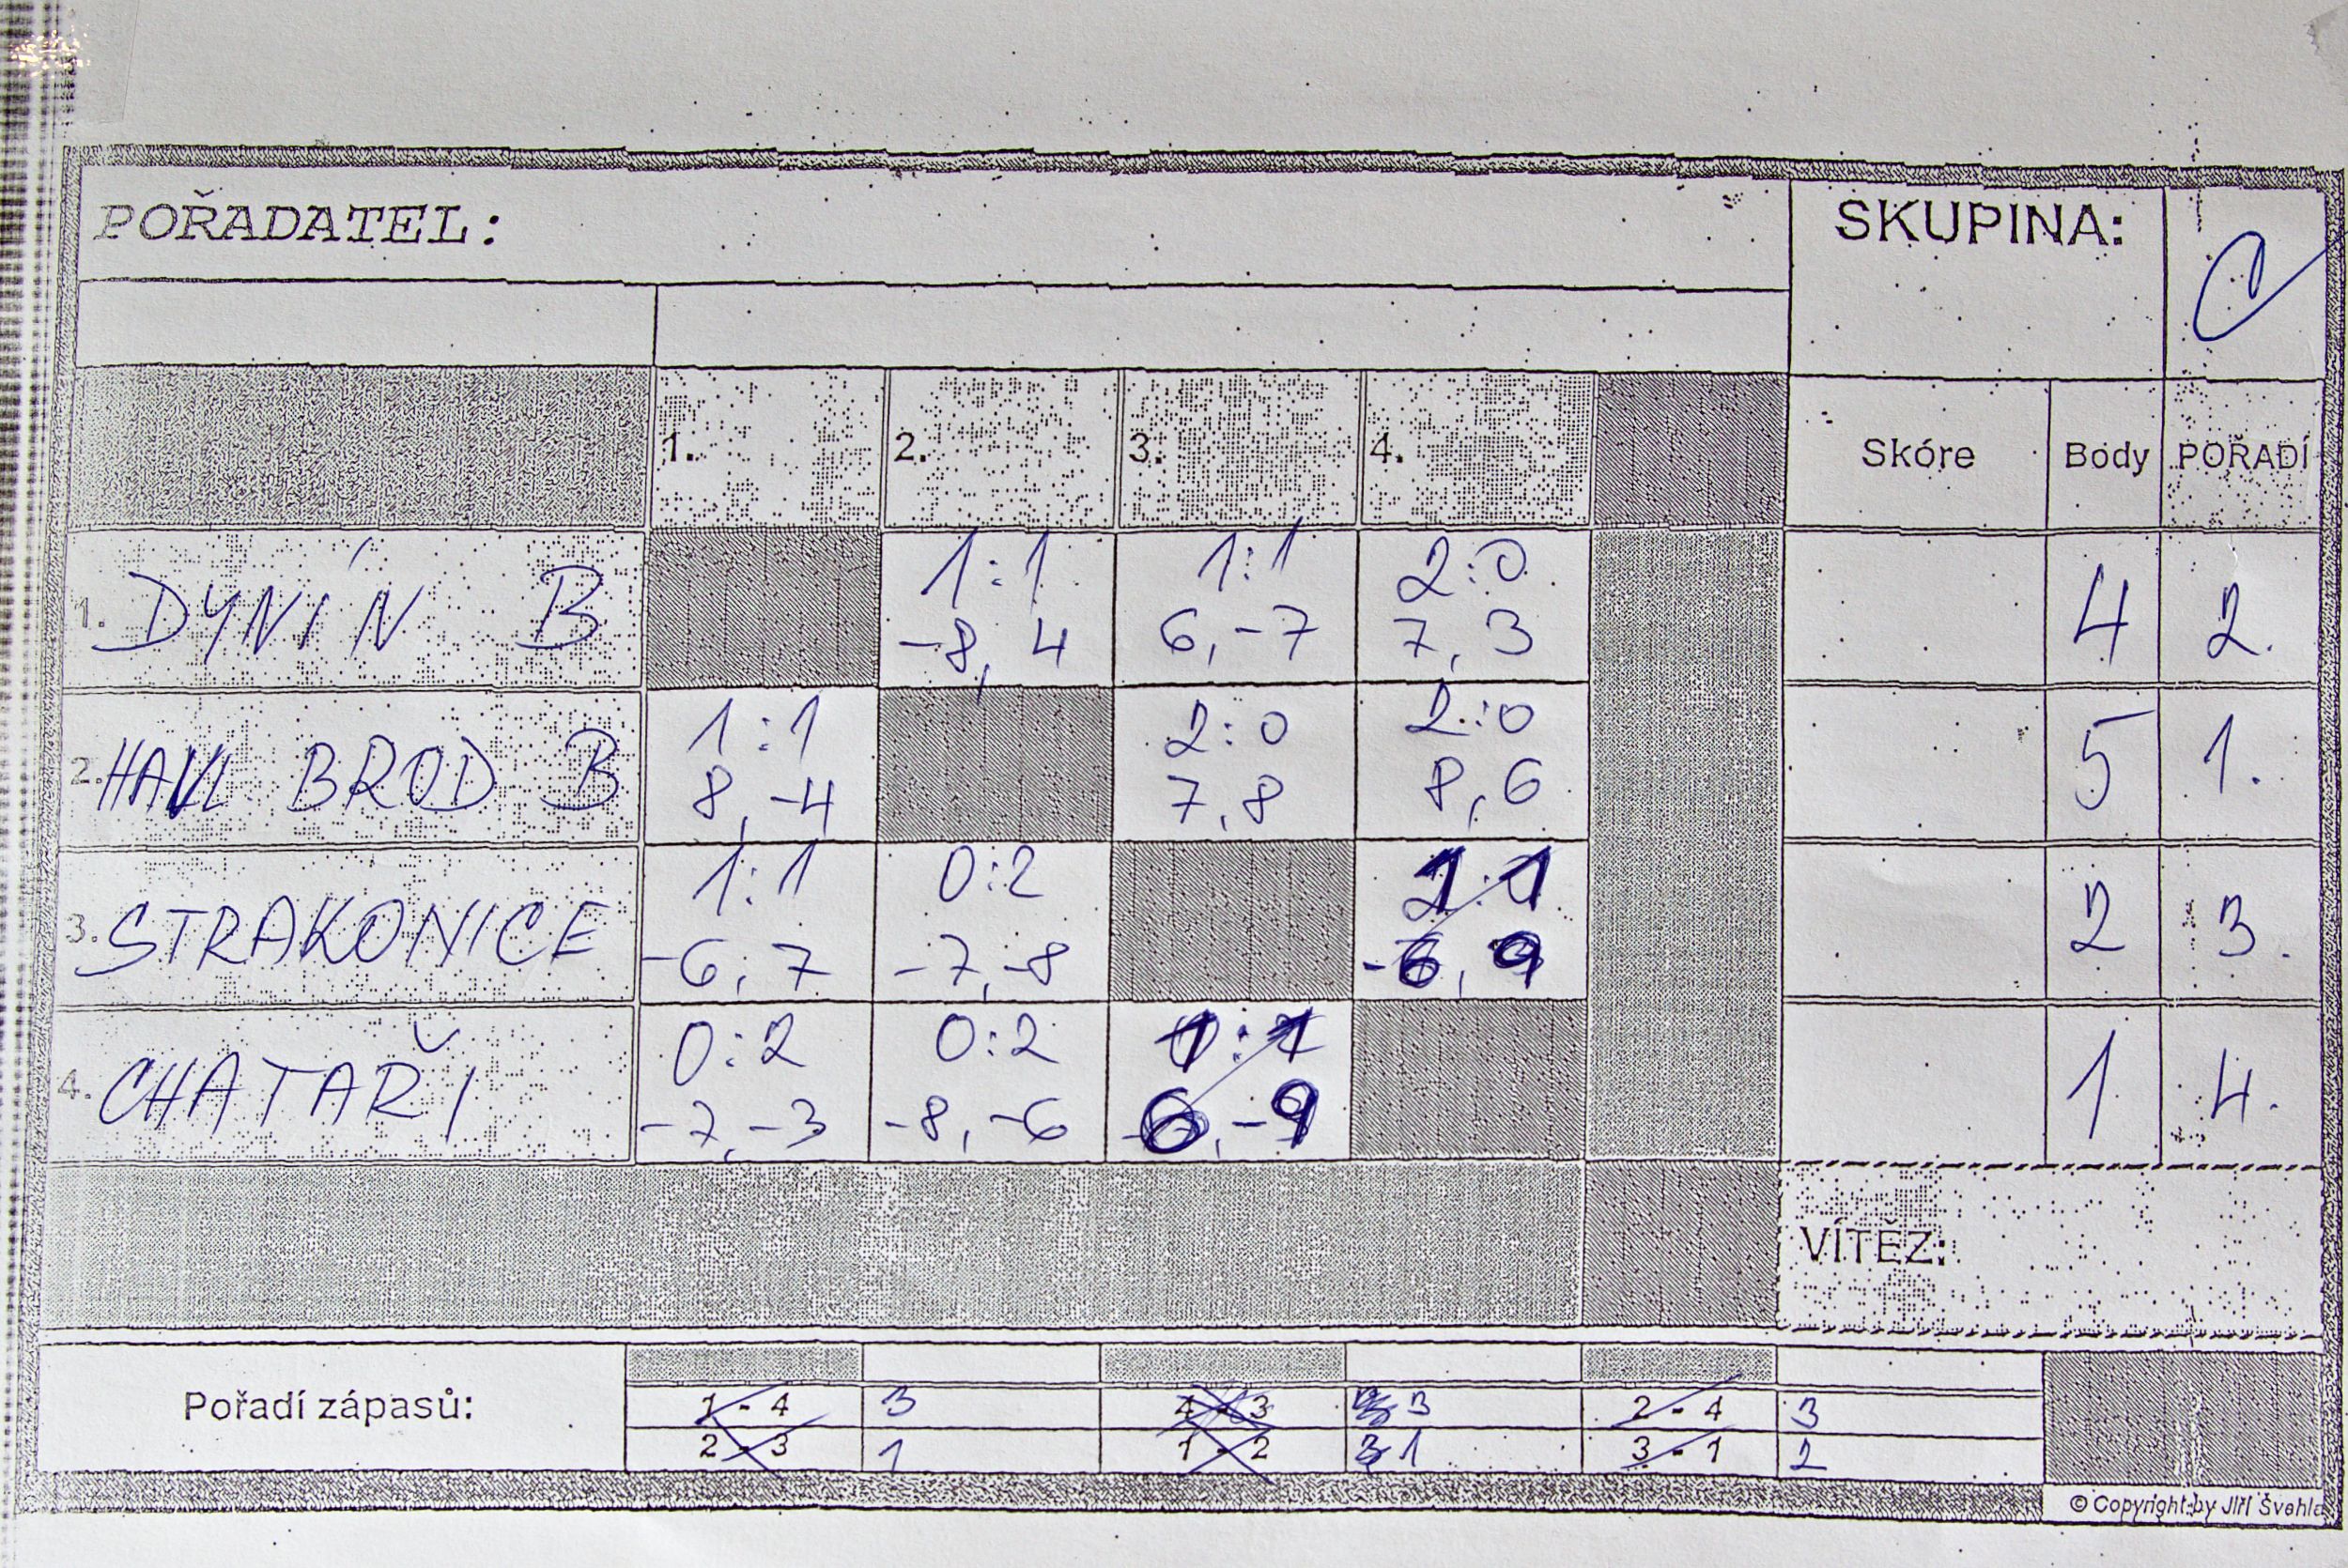 POŘADATEL:
SKUPINA: C
1. 2. 3. 4. Skóre Body POŘADÍ
1. DYNÍN B 1:1 1:1 2:0 4 2.
-8, 4 6, -7 7, 3
2. HAVL BROD B 1:1 2:0 2:0 5 1.
8, -4 7, 8 8, 6
3. STRAKONICE 1:1 0:2 1:1 2 3.
-6, 7 -7, -8 -6, 9
4. CHATAŘI 0:2 0:2 1:1 1 4.
-7, -3 -8, -6 6, -9
VÍTĚZ:
Pořadí zápasů:
1 - 4 3 4 - 3 3 2 - 4 3
2 - 3 1 1 - 2 1 3 - 1 2
© Copyright by Jiří Švehla